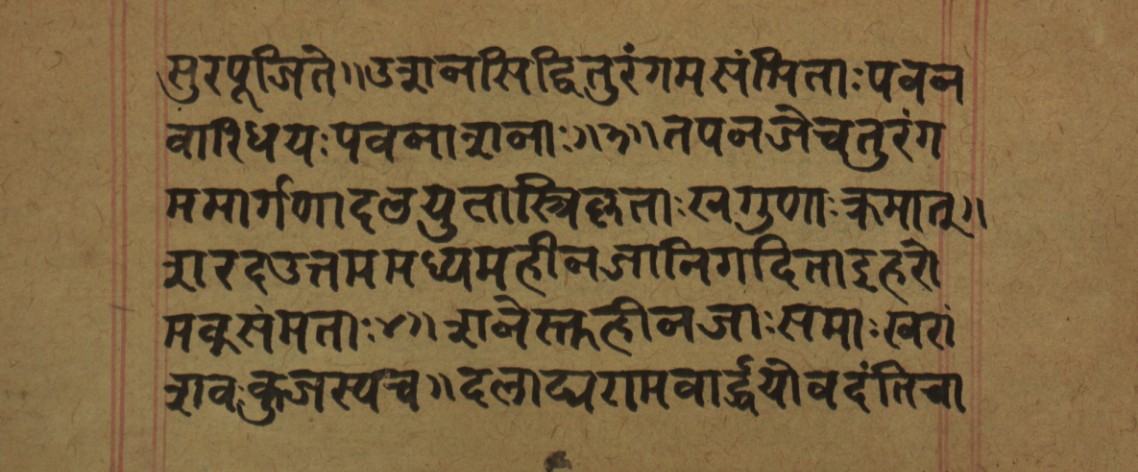 सुरपूजिते॥उशनसिद्वितुरंगमसंमिताःपवन
वारिधयःपवनाशनाः॥३॥तपनजेचतुरंग
ममार्गणादलयुतास्त्रिघ्नताःखगुणाःक्रमात्॥
शरदउत्तममध्यमहीनजानिगदिताद्रुहरो
मवुसंमताः४॥शनेस्त्तहीनजाःसमाःखरां
शवःकुजस्यच॥दलाढ्यरामवार्द्धयोवदंतिचा